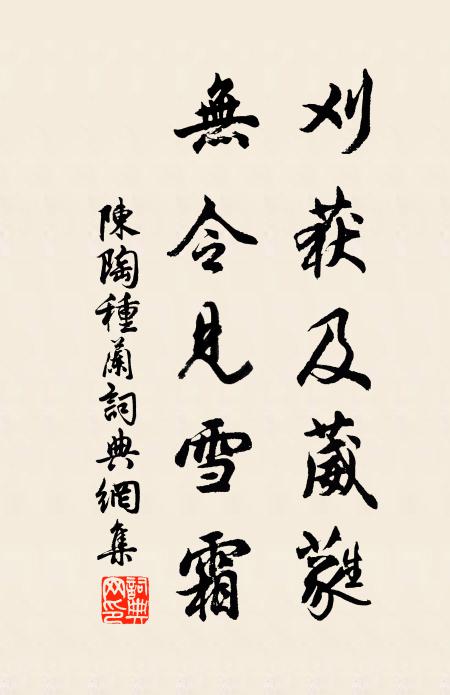 刈获及葳蕤
無令見雪霜
陳陶種蘭詞典網集
詞典网印